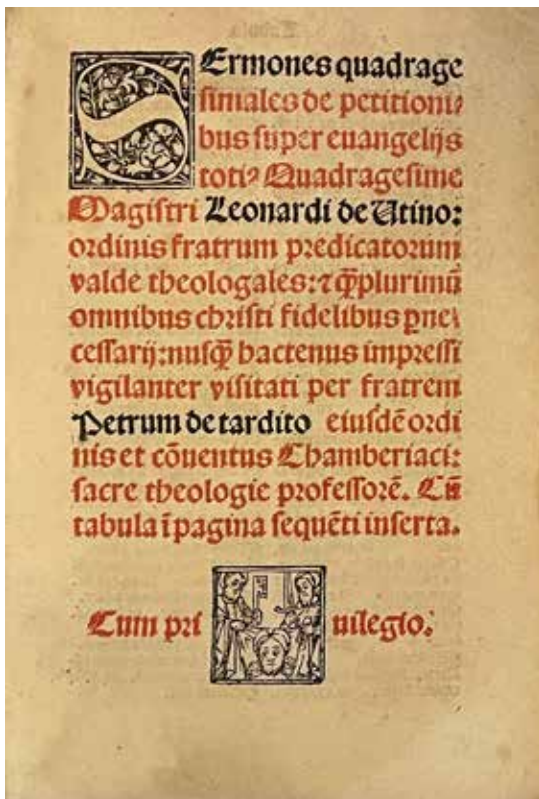 Sermones quadrage
simales de petitioni⸗
bus super euangelijs
totiꝰ Quadragesime
Magistri Leonardi de Utino:
ordinis fratrum predicatorum
valde theologales: ⁊ ꝙplurimū
omnibus christi fidelibus ꝑne⸗
cessarij: nusꝙ hactenus impressi
vigilanter visitati per fratrem
Petrum de tardito eiusdē ordi
nis et cōuentus Chamberiaci:
sacre theologie professorē. Cū
tabula ī pagina sequēti inserta.
Cum pri uilegio.